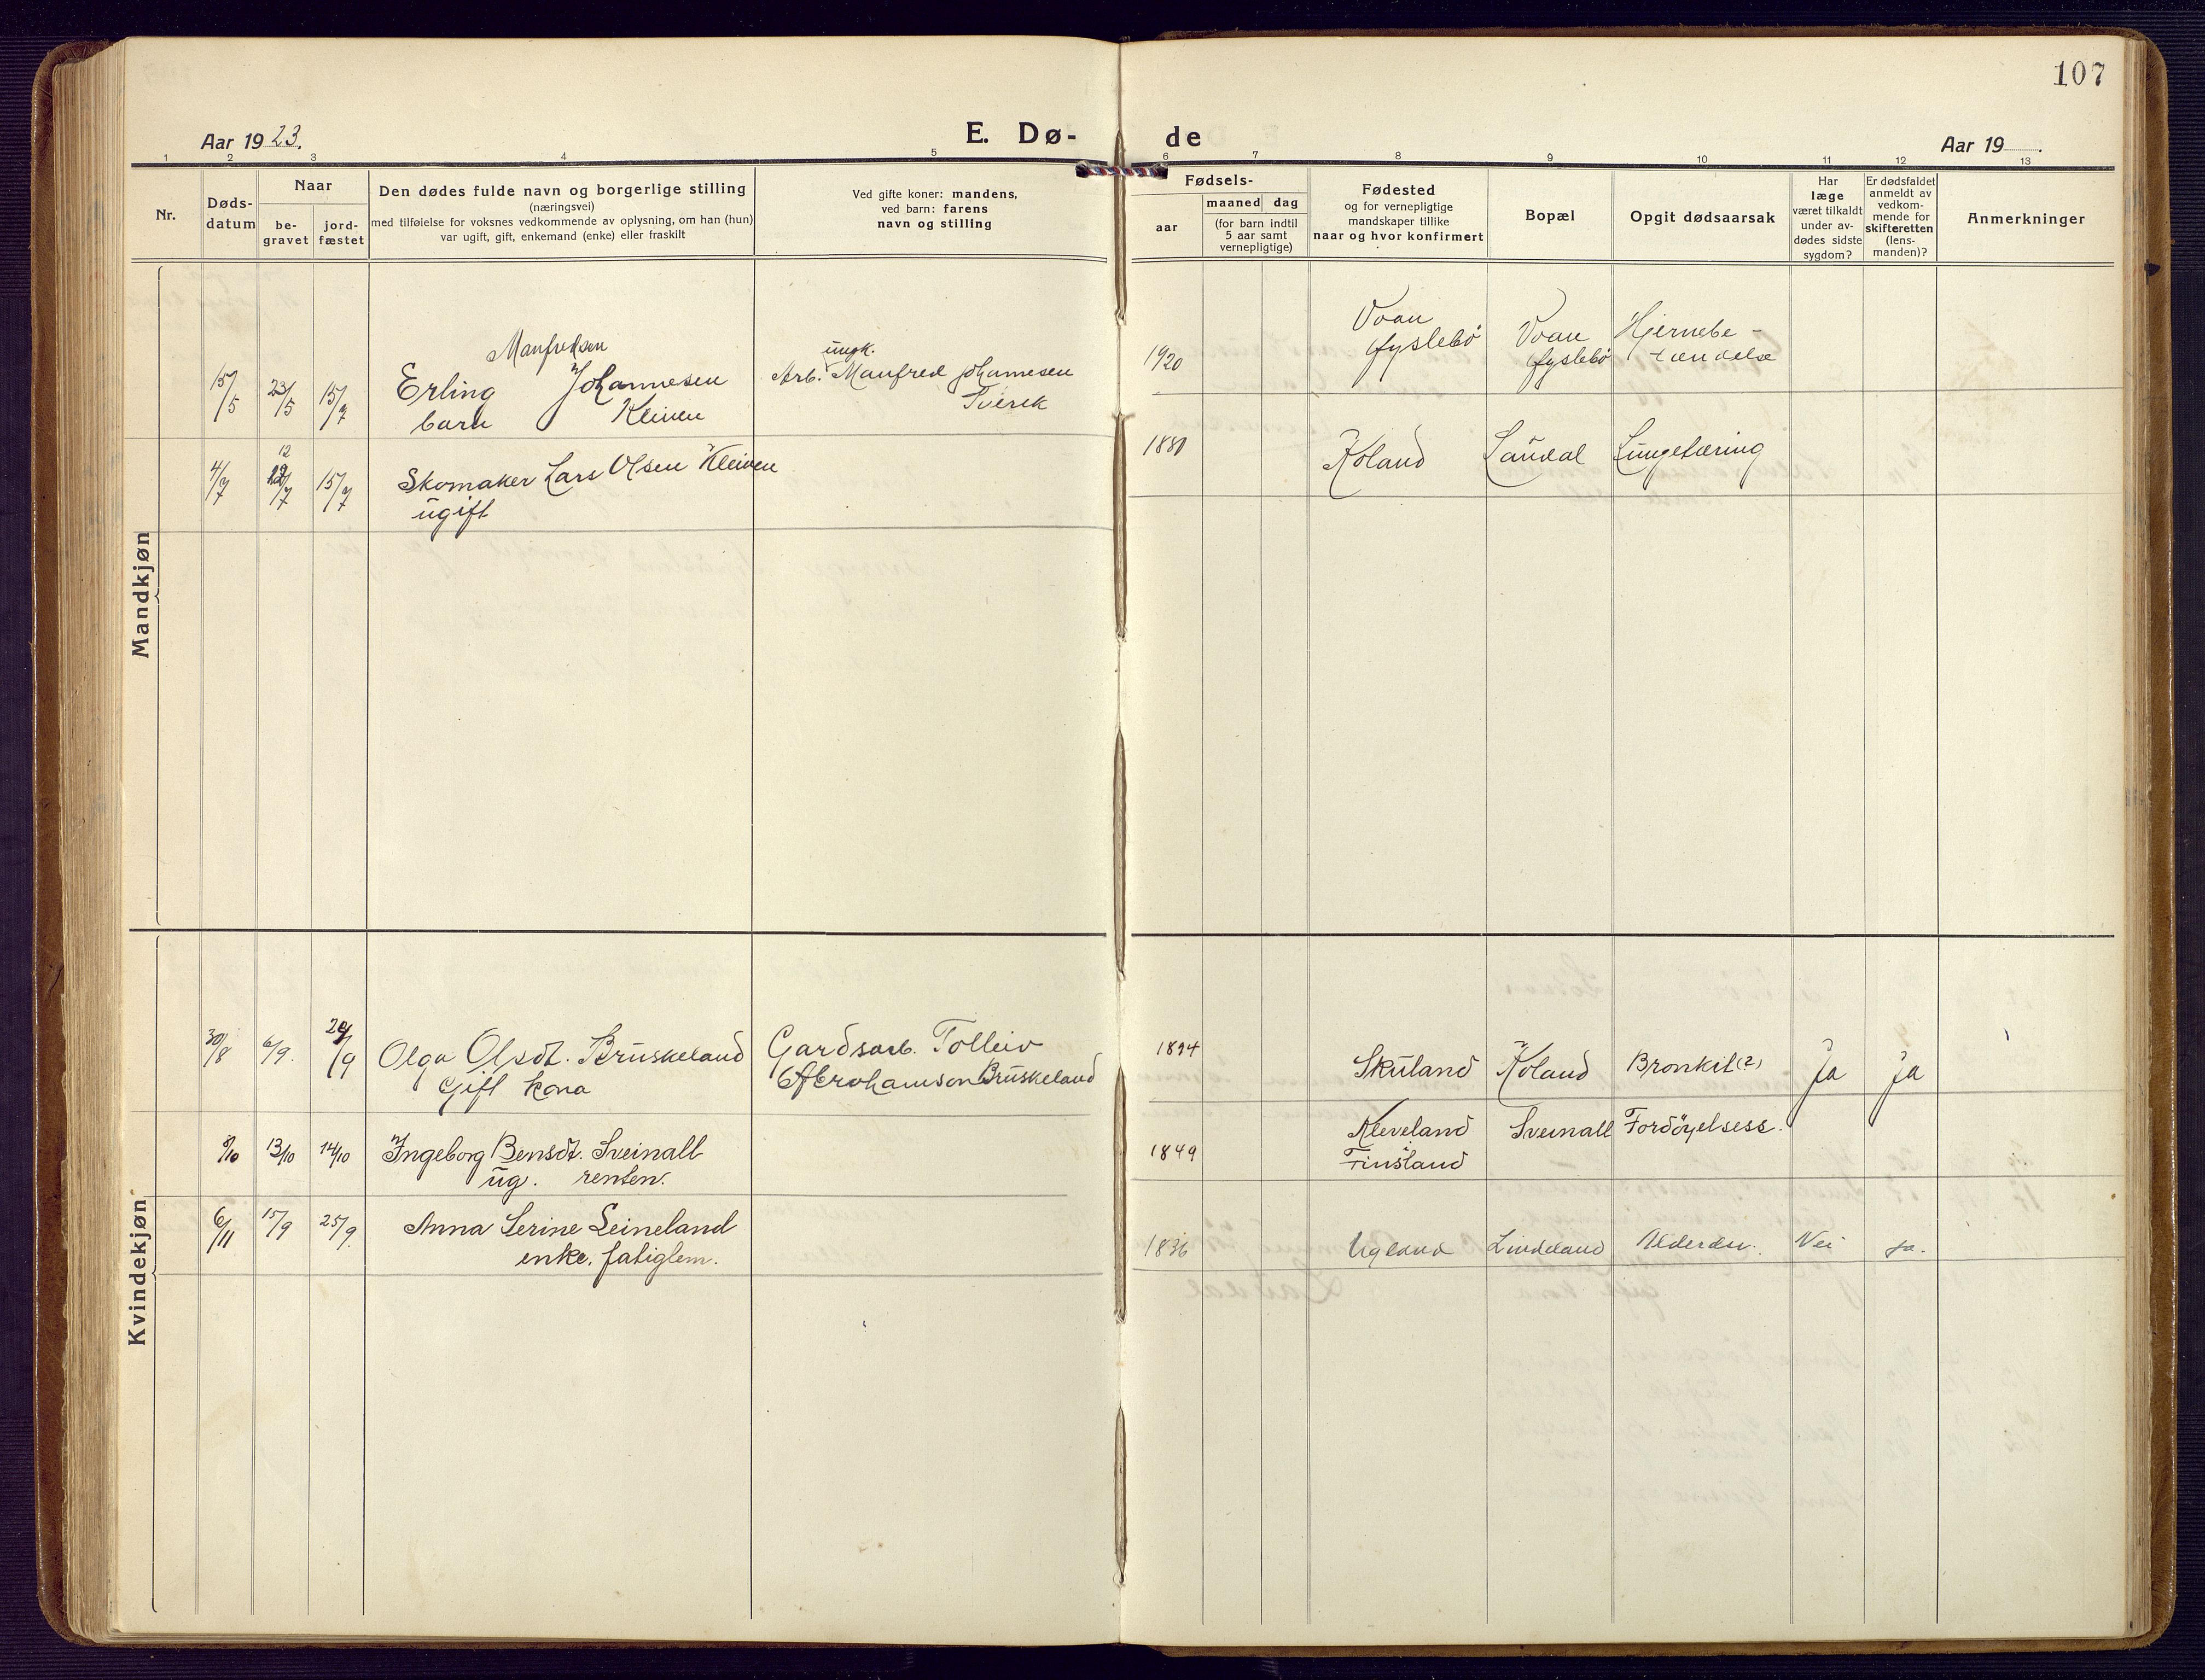 107
Aar 1923.
E. Dø-
de
Aar 19 .
1 2 3 4 5 6 7 8 9 10 11 12 13
Nr.
Døds-
datum
Naar
be-
gravet
jord-
fæstet
Den dødes fulde navn og borgerlige stilling
(næringsvei)
med tilføielse for voksnes vedkommende av oplysning, om han (hun)
var ugift, gift, enkemand (enke) eller fraskilt
Ved gifte koner: mandens,
ved barn: farens
navn og stilling
Fødsels-
aar
maaned dag
(for barn indtil
5 aar samt
vernepligtige)
Fødested
og for vernepligtige
mandskaper tillike
naar og hvor konfirmert
Bopæl
Opgit dødsaarsak
Har
læge
været tilkaldt
under av-
dødes sidste
sygdom?
Er dødsfaldet
anmeldt av
vedkom-
mende for
skifteretten
(lens-
manden)?
Anmerkninger
Mandkjøn
15/5 23/5 15/7
Manfredsen
Erling Johannesen
barn Kleiven
ungk.
Arb. Manfred Johannesen
1920
Voan
Øyslebö
Voan
Øyslebö
Hjernebe-
tændelse
4/7 12/7 15/7
Skomaker Lars Olsen Kleiven
ugift
1880
Koland
Laudal
Lungetæring
Kvindekjøn
30/8 6/9. /9
Olga Olsdt. Bruskeland
Gift kona
Gardsarb. Tolleiv
Abrahamson Bruskeland
1894
Skuland
Koland
Bronkit (?)
Ja
Ja
8/10 13/10 14/10
Ingeborg Bensdt. Sveinall
ug. renten.
1849
Kleveland
Finsland
Sveinall
Fordöyelsess.
6/11 15/9 25/9.
Anna Serine Leineland
enke. fatiglem.
1836
Ugland
Lindeland
Alderdn.
Nei
ja.